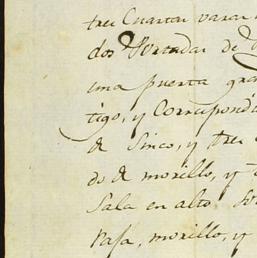 tres Cuartas varas
dos Portadas de
una puerta gra
tigo, y Correspondi
de Sinco, y tres
do de morillo, y
Sala en alto
Pasa, morillo, y